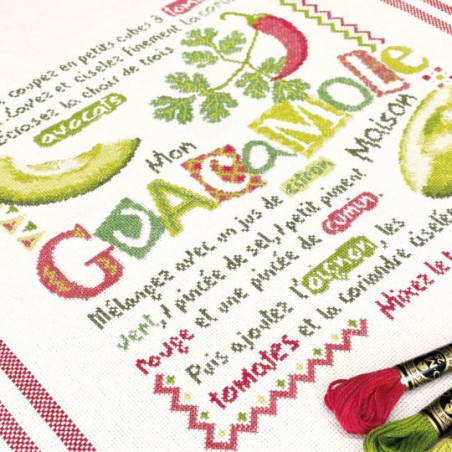 coupez en petits cubes 2
Lavez et ciselez finement la
Écrasez la chair de trois
avocats
Mon
GUACAMOLE
Maison
Mélangez avec un jus de citron
vert, 1 pincée de sel, 1 petit piment
rouge et une pincée de cumin
Puis ajoutez l'oignon, les
tomates et la coriandre ciselée
Mixez le t
DMC